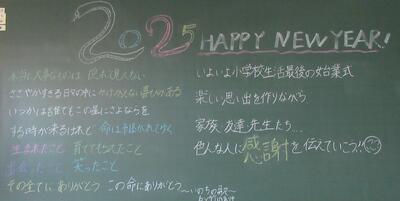 2025 HAPPY NEW YEAR!
本当に大事なものは 隠れて見えない
ささやかすぎる日々の中に かけがえない喜びがある
いつかは誰でも この星にさよならを
する時が来るけれど 命は継がれてゆく
生まれたこと 育ててもらえたこと
出会ったこと 笑ったこと
その全てにありがとう この命にありがとう
～いのちの歌～
いよいよ小学校生活最後の始業式
楽しい思い出を作りながら
家族、友達、先生たち…
色んな人に感謝を伝えていこう!!